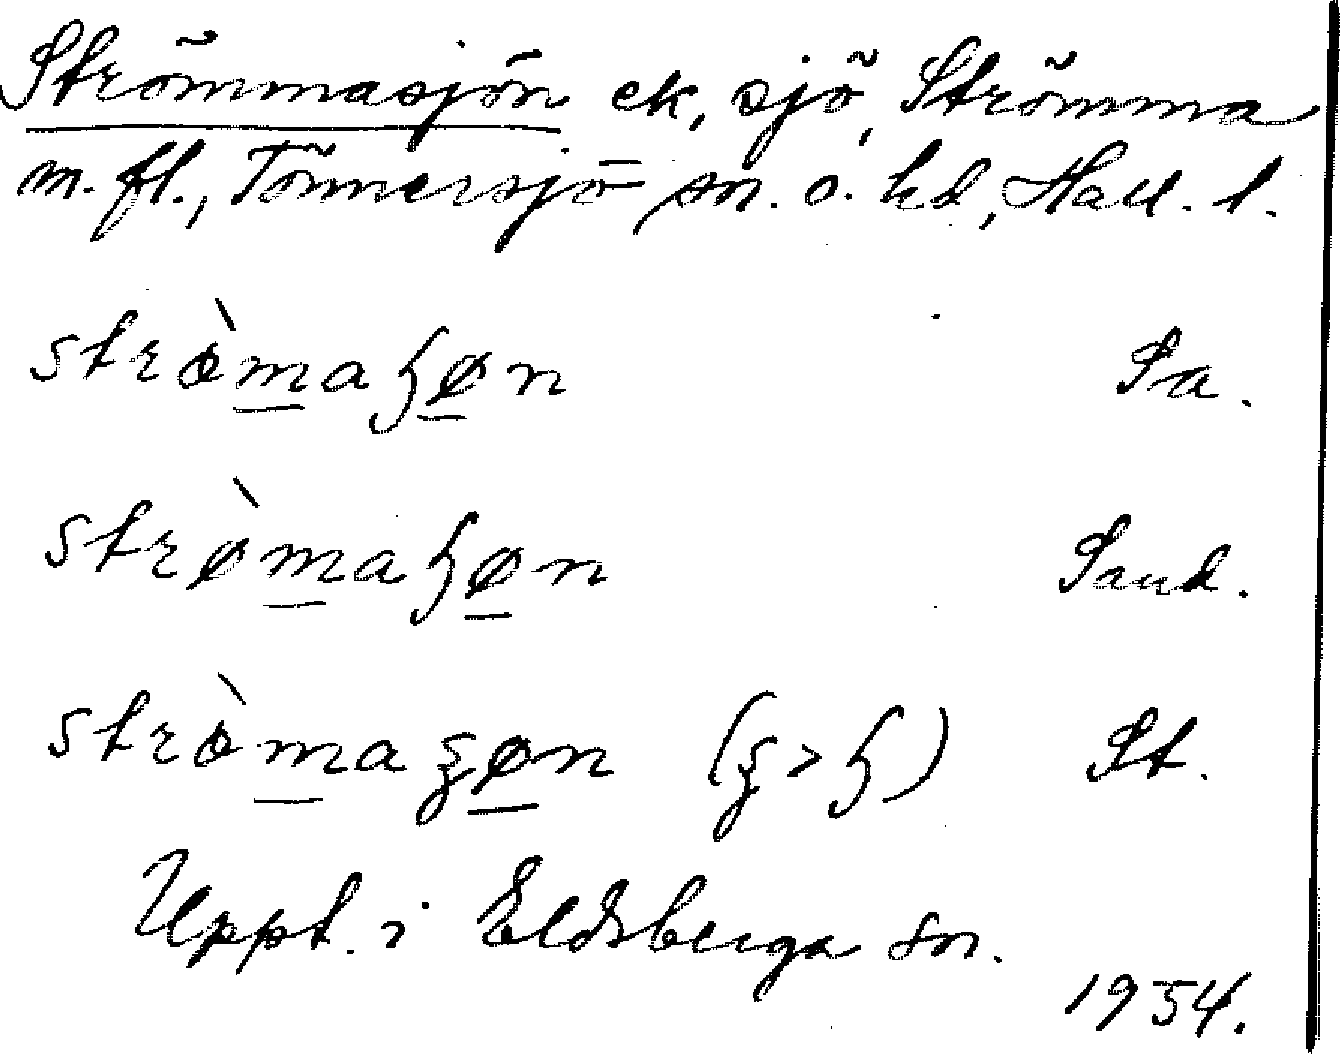 Strömmasjön ek, sjö, Strömma
m. fl., Tönnersjö sn. o. hd, Hall. l.
strø̀maɧøn Sa.
strø̀maɧøn Sand.
strø̀maʒøn (ʒ > ɧ) St.
Uppt. i Eldsberga sn.
1954.